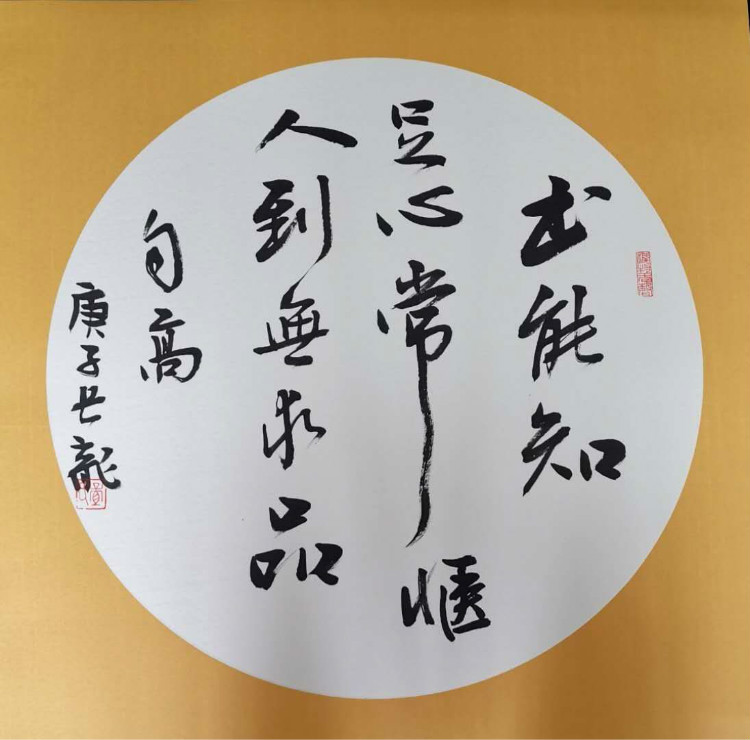 事能知
足心常愜
人到無求品
自高
庚子世龍